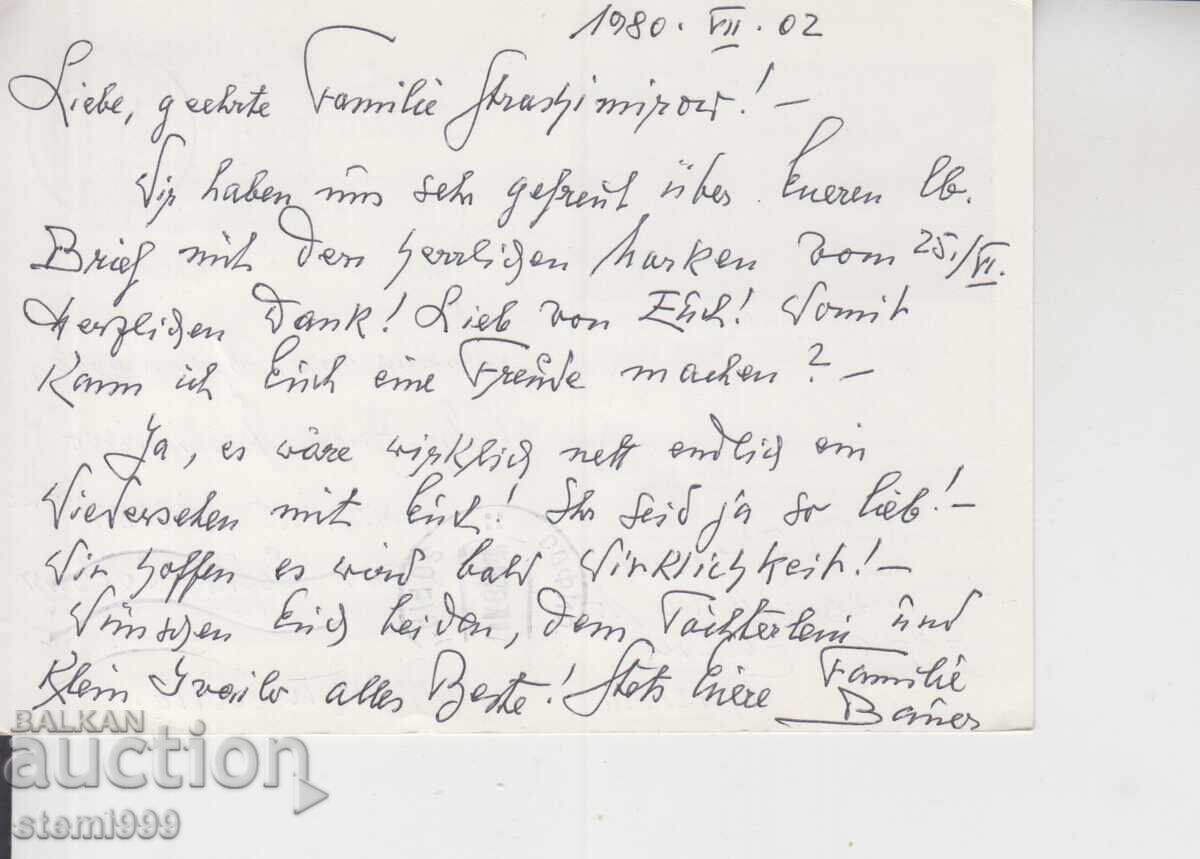 1980. VII. 02
Liebe, geehrte Familie Straschimirow! -
Wir haben uns sehr gefreut über Eueren lb.
Brief mit den herrlichen Marken vom 25./VI.
Herzlichen Dank! Lieb von Euch! Womit
kann ich Euch eine Freude machen? -
Ja, es wäre wirklich nett endlich ein
Wiedersehen mit Euch! Ihr seid ja so lieb! -
Wir hoffen es wird bald Wirklichkeit! -
Wünschen Euch beiden, dem Töchterlein und
Klein Ivailo alles Beste! Stets Euere Familie
Bauer
BALKAN
auction
stemi999